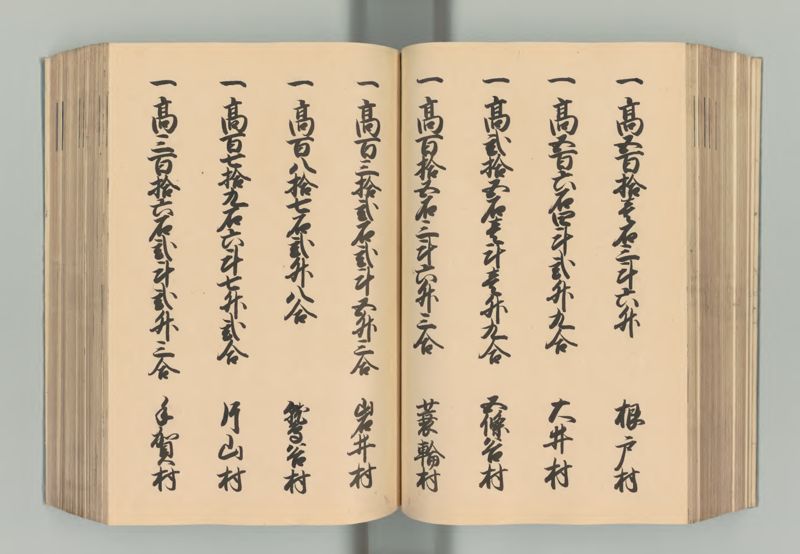 一高五百拾壱石三斗六升 根戸村
一高五百六石四斗弐升九合 大井村
一高弐拾五石壱斗壱升九合 五條谷村
一高百拾五石三斗六升三合 蓑輪村
一高百三拾弐石弐斗五升三合 岩井村
一高百八拾七石弐升八合 鷲谷村
一高百七拾九石六斗七升弐合 片山村
一高三百拾六石弐斗弐升三合 手賀村